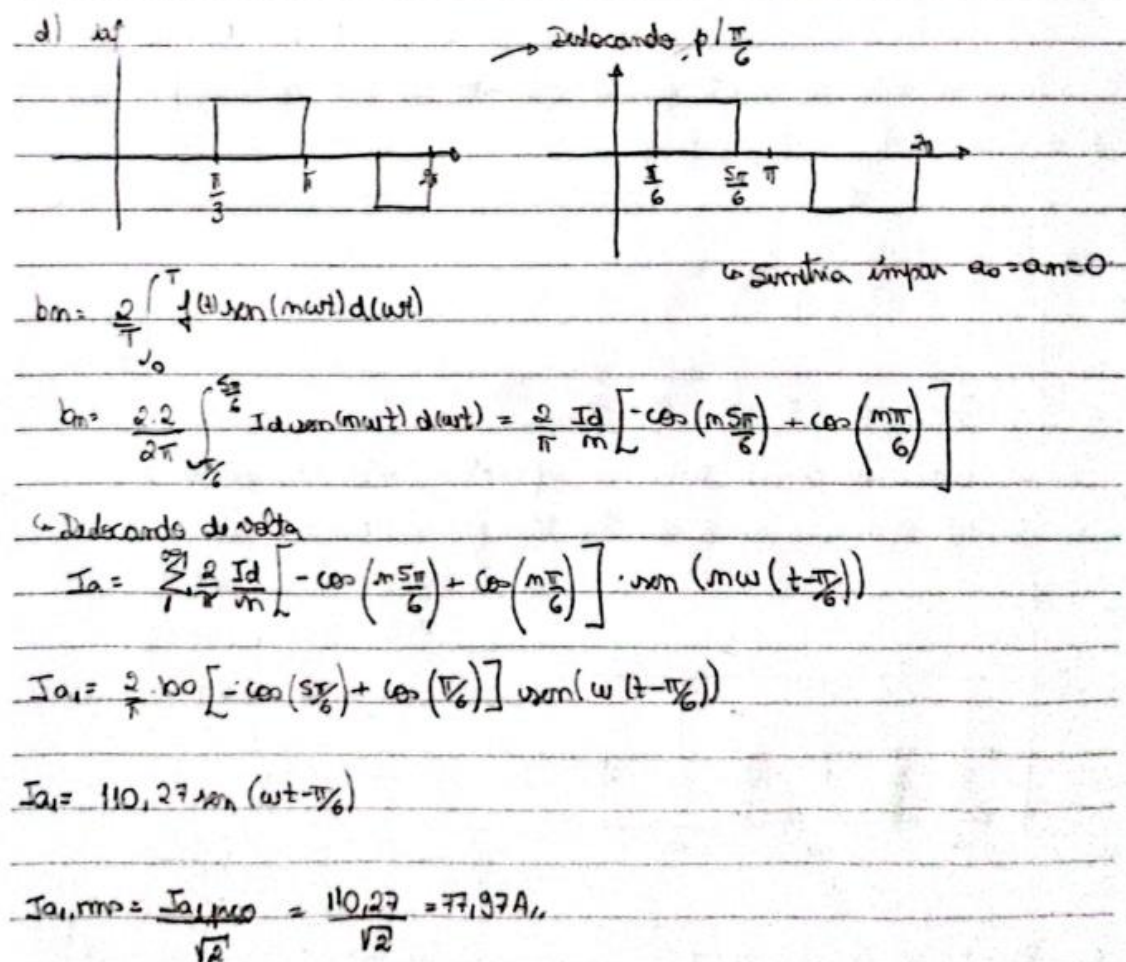 d) ia
→ Deslocando p/ π/6
π/3 π 2π
π/6 5π/6 π 2π
↳ Simetria ímpar a₀ = an = 0
bn = 2/T ∫₀ᵀ f(t) sen(nωt) d(ωt)
bn = 2.2/2π ∫_{π/6}^{5π/6} Id sen(nωt) d(ωt) = 2/π Id/n [-cos(n5π/6) + cos(nπ/6)]
↳ Deslocando de volta
Ia = ∑₁^∞ 2/π Id/n [-cos(n5π/6) + cos(nπ/6)] · sen(nω(t-π/6))
Ia₁ = 2/π · 100 [-cos(5π/6) + cos(π/6)] sen(ω(t-π/6))
Ia₁ = 110,27 sen(ωt-π/6)
Ia₁,rms = Ia₁,pico/√2 = 110,27/√2 = 77,97A,,